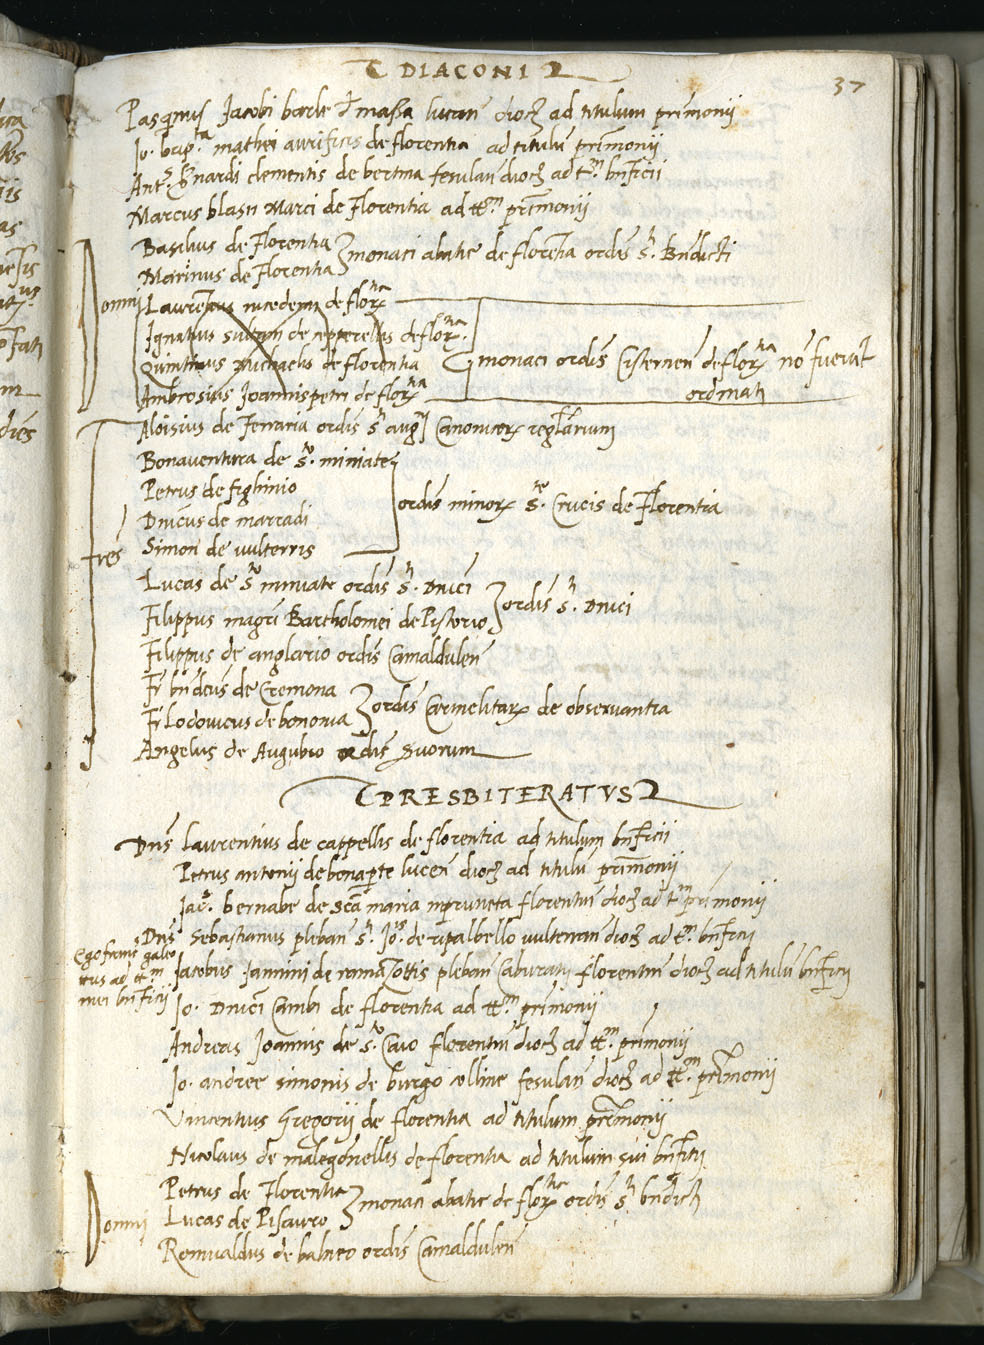 DIACONI
37
Pasquinus Jacobi barle de massa lucan dioc ad titulum primonij
Jo. bapta mathei aurificis de florentia ad titulu primonij
Ant. Bnardi clementis de bertina fesulan dioc ad tm bnficij
Marcus blasij Marci de Florentia ad ttm primonij
Basilius de Florentia
Marinus de Florentia
monaci abatie de florentia ordis Sti Bndicti
Domni
Laurentius de flora
Ignatius de flora
Quintinus Michaelis de florentia
Ambrosius Joannispetri de flora
monaci ordis Cistercien de flora no fuerut
ordinati
Aloisius de Ferraria ordis Sti augni Canonicor reglarium
Bonaventura de Sto miniate
Petrus de fighinio
Dnicus de marradi
Simon de vulterris
ordis minor Ste Crucis de Florentia
fres
Lucas de Sto miniate ordis Sti Dnici
Filippus magri Bartholomei de Pistorio
ordis Sti Dnici
Filippus de anglario ordis Camaldulen
Fr bndictus de Cremona
Fr Lodovicus de bononia
ordis Carmelitar de observantia
Angelus de Augubio ordis Suorum
PRESBITERATVS
Dns Laurentius de cappellis de florentia ad titulum bnficii
Petrus antonii de bonaparte lucen dioc ad titulu primonij
Jac. bernabe de Sca maria inpruneta florentin dioc ad tm primonij
Dns Sebastianus pleban Sti Jois de ripalbello vulterran dioc ad tm bnficij
Ego franc galeo
ttus ad ttm
mei bnficij
Jacobus Jannini de ramazottis pleban Caburaci florentin dioc ad titulu bnficij
Jo. Dnici Cambi de florentia ad ttm primonij
Andreas Joannis de Sto Caio florentin dioc ad ttm primonij
Jo. andree simonis de burgo colline fesulan dioc ad ttm primonij
Vincentius Gregorij de florentia ad titulum primonij
Nicolaus de malegonellis de florentia ad titulum sui bnficij
Petrus de Florentia
Lucas de Pisauro
monaci abatie de flora ordis Sti bndicti
Domni
Romualdus de balneo ordis Camaldulen